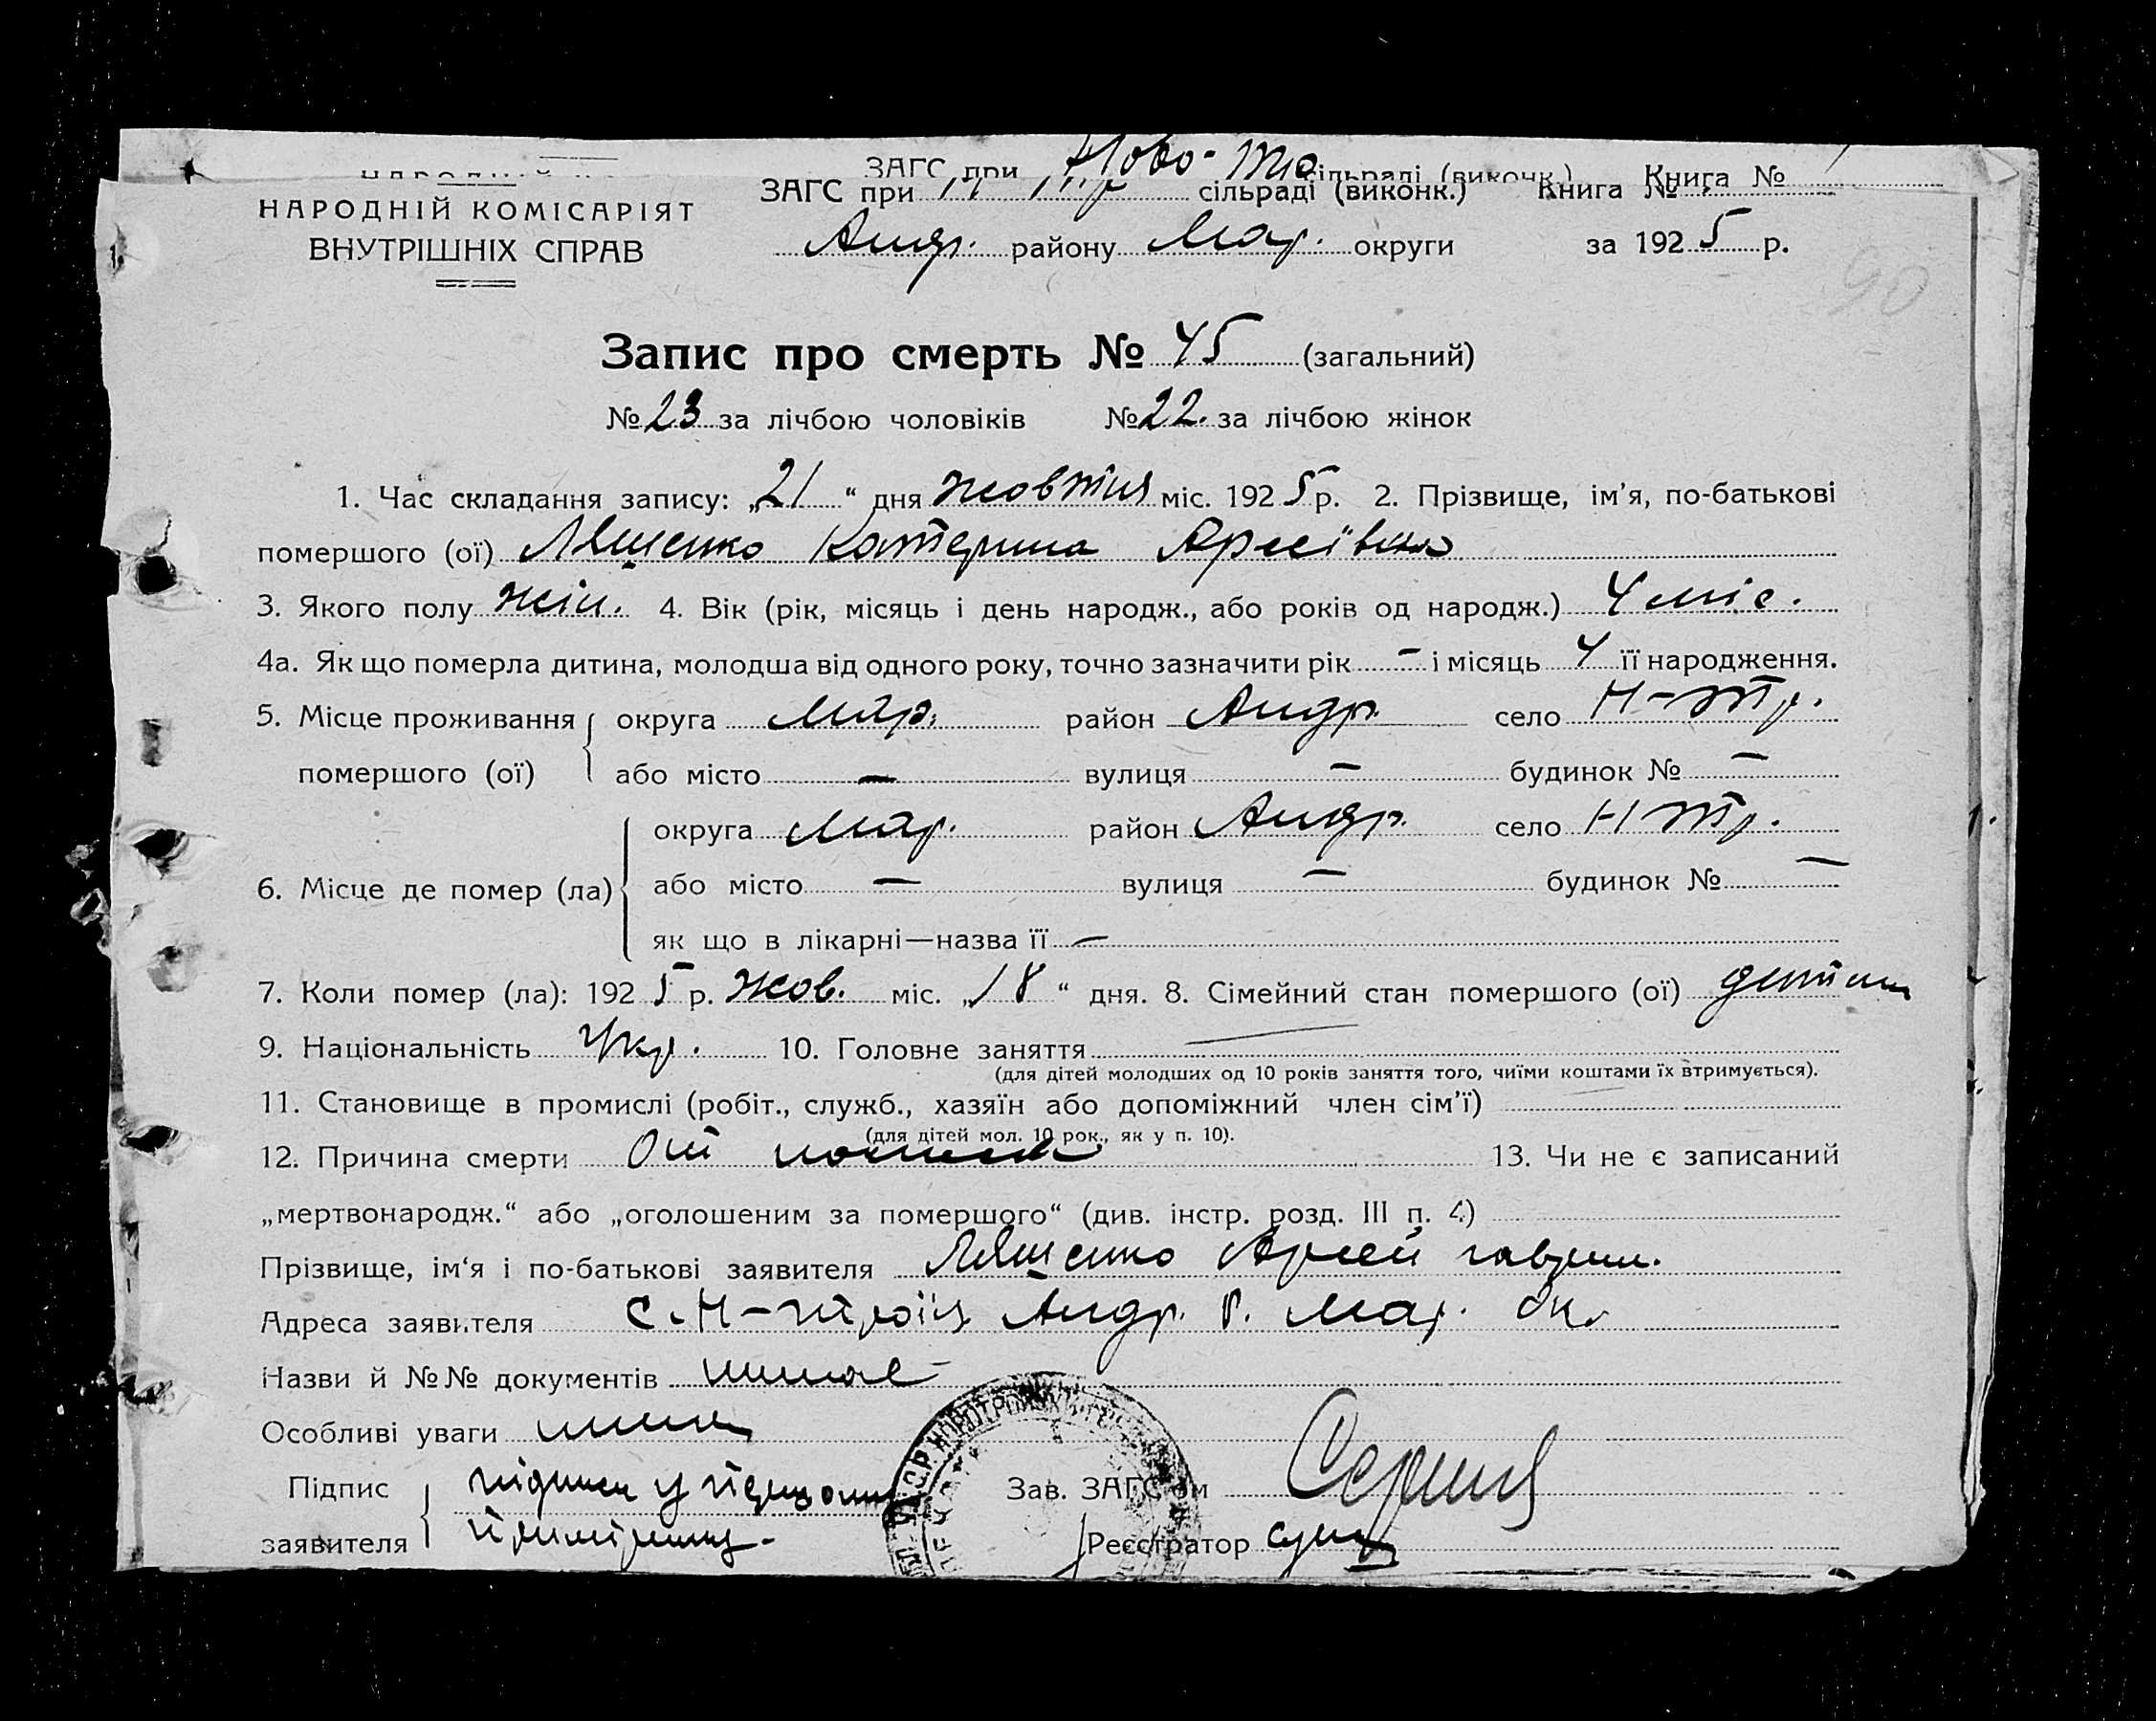 ЗАГС при Ново- сільраді (виконк.) Книга №
ЗАГС при сільраді (виконк.) Книга №
НАРОДНІЙ КОМІСАРІЯТ
ВНУТРІШНІХ СПРАВ
Андр. району Мар. округи за 1925 р.
90
Запис про смерть № 45 (загальний)
№ 23 за лічбою чоловіків № 22. за лічбою жінок
1. Час складання запису: „21“ дня жовтня міс. 1925 р. 2. Прізвище, ім’я, по-батькові
помершого (ої) Лященко Катерина
3. Якого полу жін. 4. Вік (рік, місяць і день народж., або років од народж.) 4 міс.
4а. Як що померла дитина, молодша від одного року, точно зазначити рік – і місяць 4 її народження.
5. Місце проживання округа Мар. район Андр. село Н-Тр.
помершого (ої) або місто — вулиця — будинок № —
округа Мар. район Андр. село Н Тр.
6. Місце де помер (ла) або місто — вулиця — будинок № —
як що в лікарні—назва її —
7. Коли помер (ла): 1925 р. Жов. міс. „18“ дня. 8. Сімейний стан помершого (ої) дитина
9. Національність Укр. 10. Головне заняття —
(для дітей молодших од 10 років заняття того, чиїми коштами їх втримується).
11. Становище в промислі (робіт., служб., хазяїн або допоміжний член сім’ї)
(для дітей мол. 10 рок., як у п. 10).
12. Причина смерти От 13. Чи не є записаний
„мертвонародж.“ або „оголошеним за помершого“ (див. інстр. розд. III п. 4)
Прізвище, ім‘я і по-батькові заявителя Лященко Гаврил.
Адреса заявителя с. Н-Троїц. Андр. р. Мар. ок.
Назви й №№ документів немає
Особливі уваги
Підпис підписи у
заявителя
Зав. ЗАГС’ом
Реєстратор